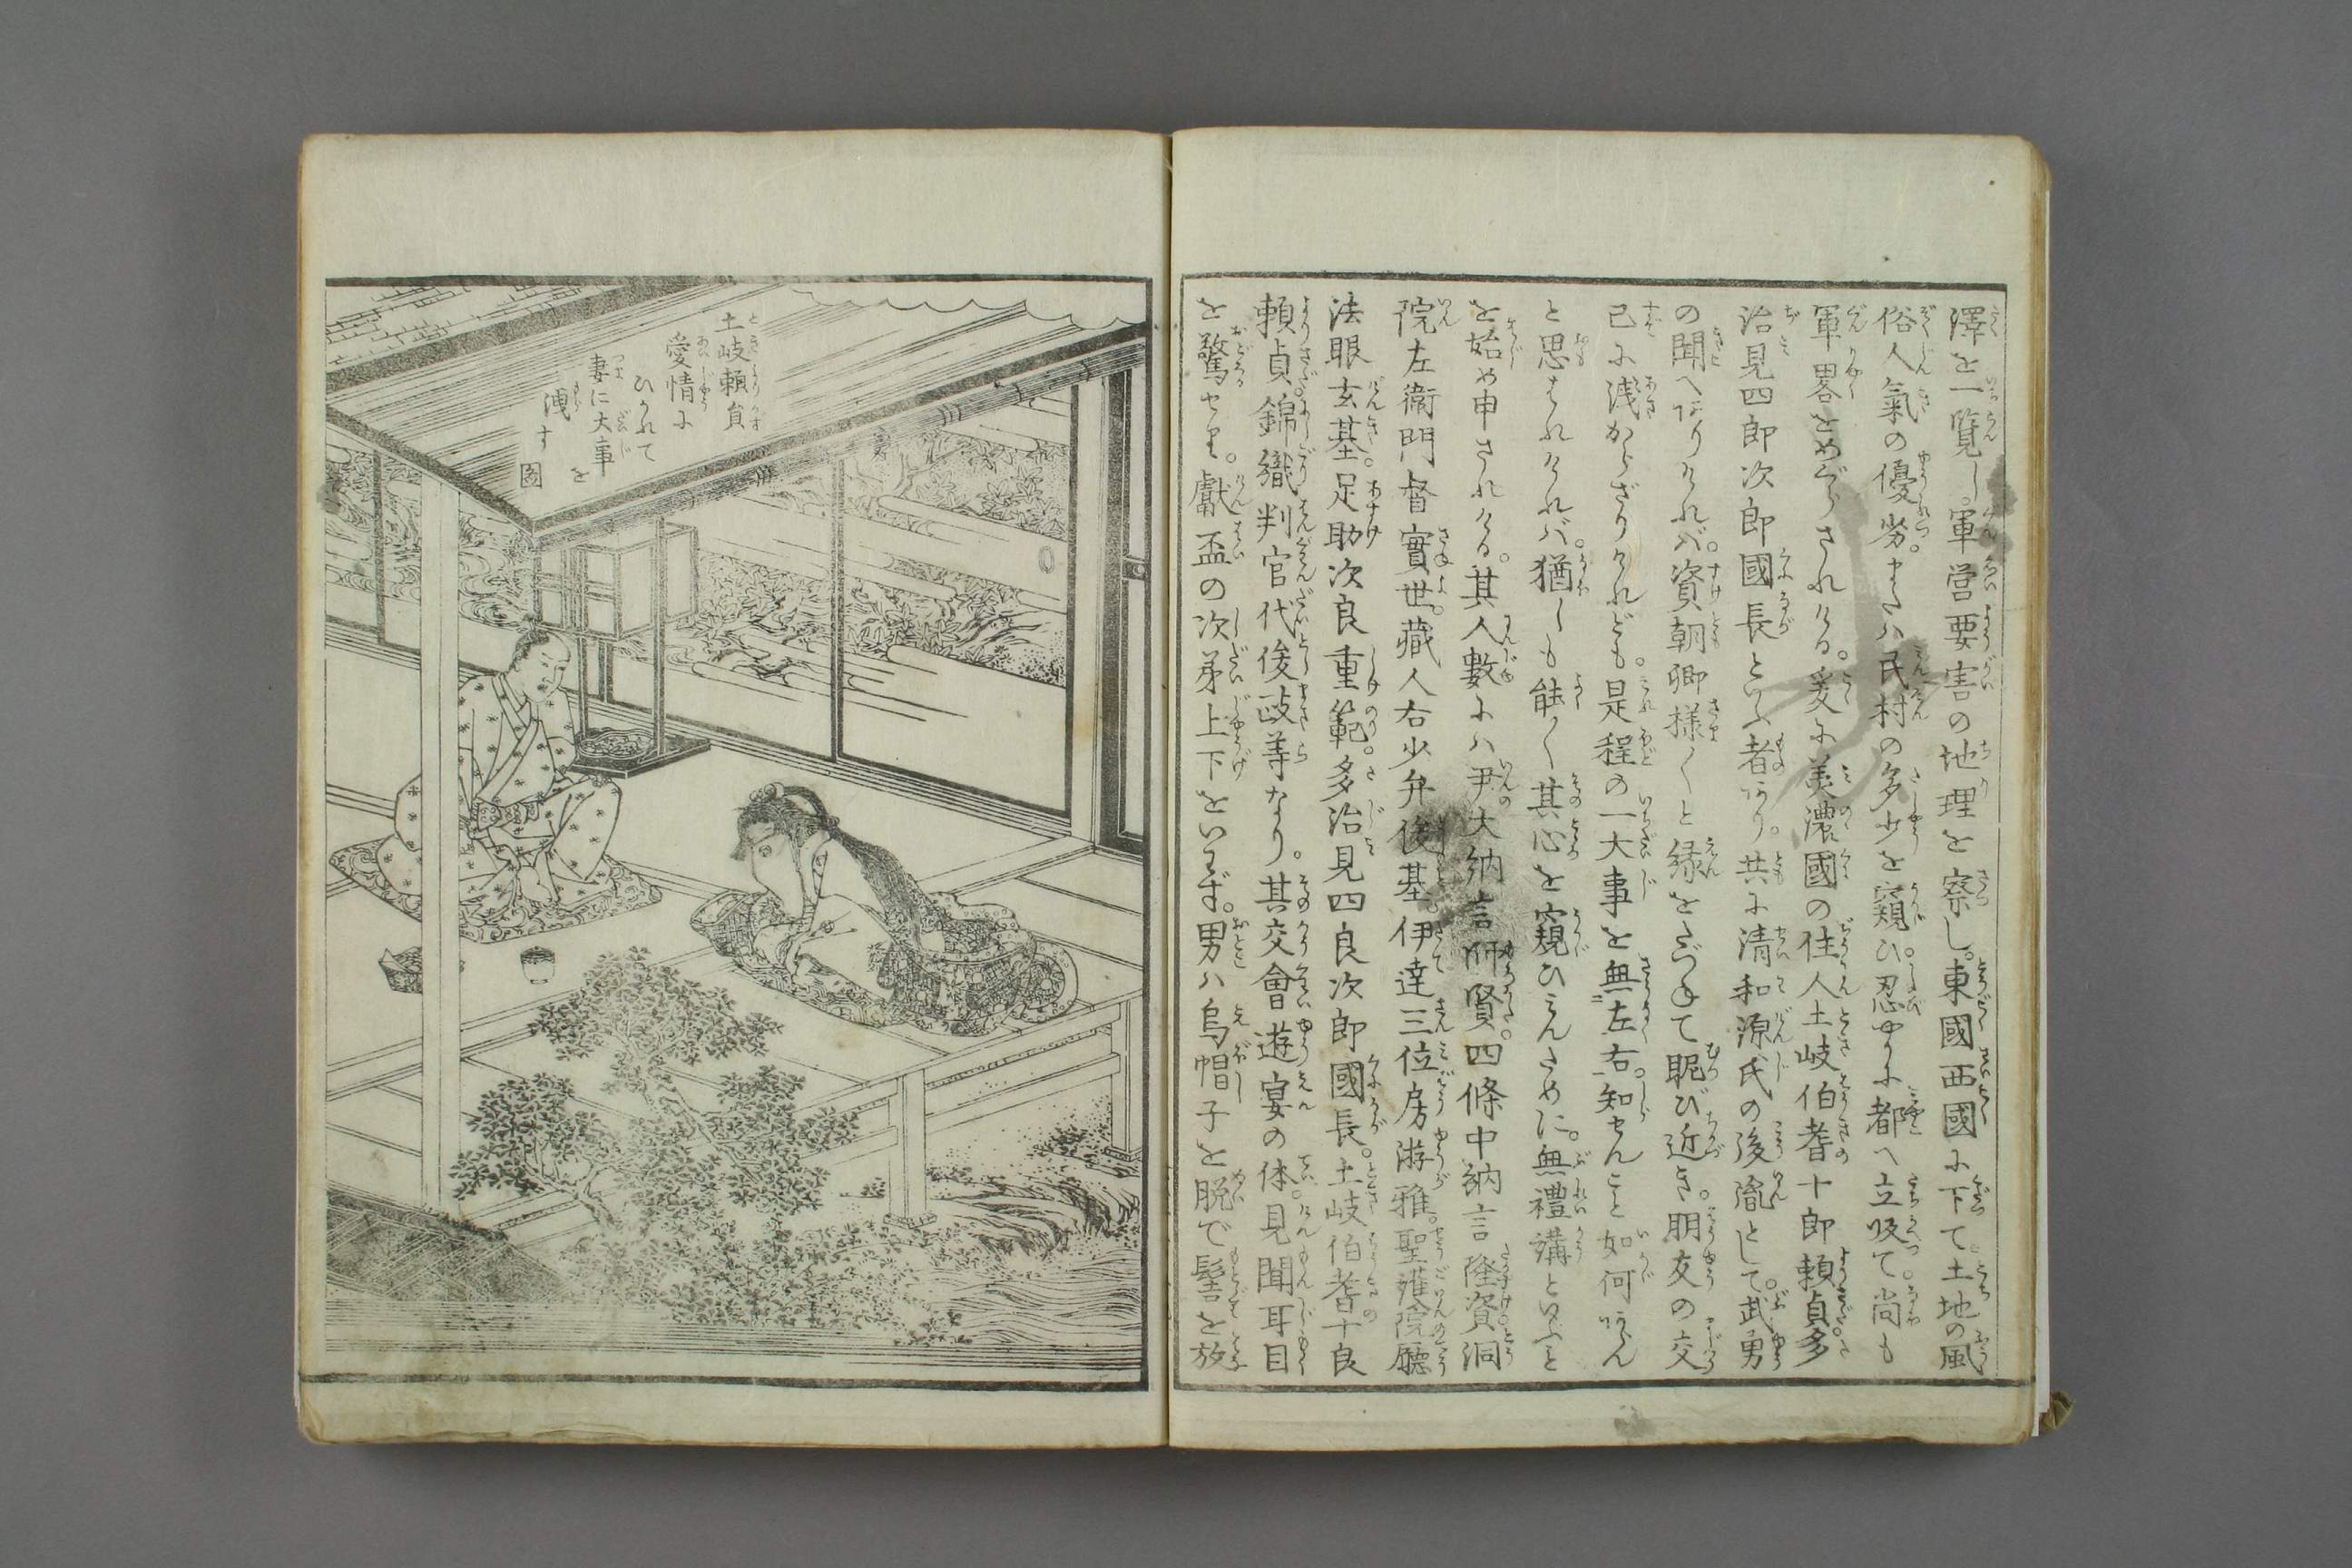 澤を一覧し。軍営要害の地理を察し。東國西國に下て土地の風
俗人氣の優劣。または民村の多少を窺ひ。忍やかに都へ立皈て。尚も
軍畧をめぐらされける。爰に美濃國の住人土岐伯耆十郎頼貞。多
治見四郎次郎國長といふ者あり。共に清和源氏の後胤として。武勇
の聞へありければ。資朝卿様〱と縁をたづねて眤び近き。朋友の交
已に浅からざりけれども。是程の一大事を無左右。知せんこと如何あらん
と思はれければ。猶しも能〱其心を窺ひ見んために。無禮講といふこと
を始め申されける。其人數には尹大納言師賢。四條中納言隆資。洞
院左衞門督實世。藏人右少弁俊基。伊達三位房游雅。聖護院廳
法眼玄基。足助次良重範。多治見四良次郎國長。土岐伯耆十良
頼貞。錦織判官代俊政等なり。其交會遊宴の体。見聞耳目
を驚せり。獻盃の次第上下をいはず。男ハ烏帽子を脱で髻を放
土岐頼貞
愛情に
ひかれて
妻に大事を
洩す
圖